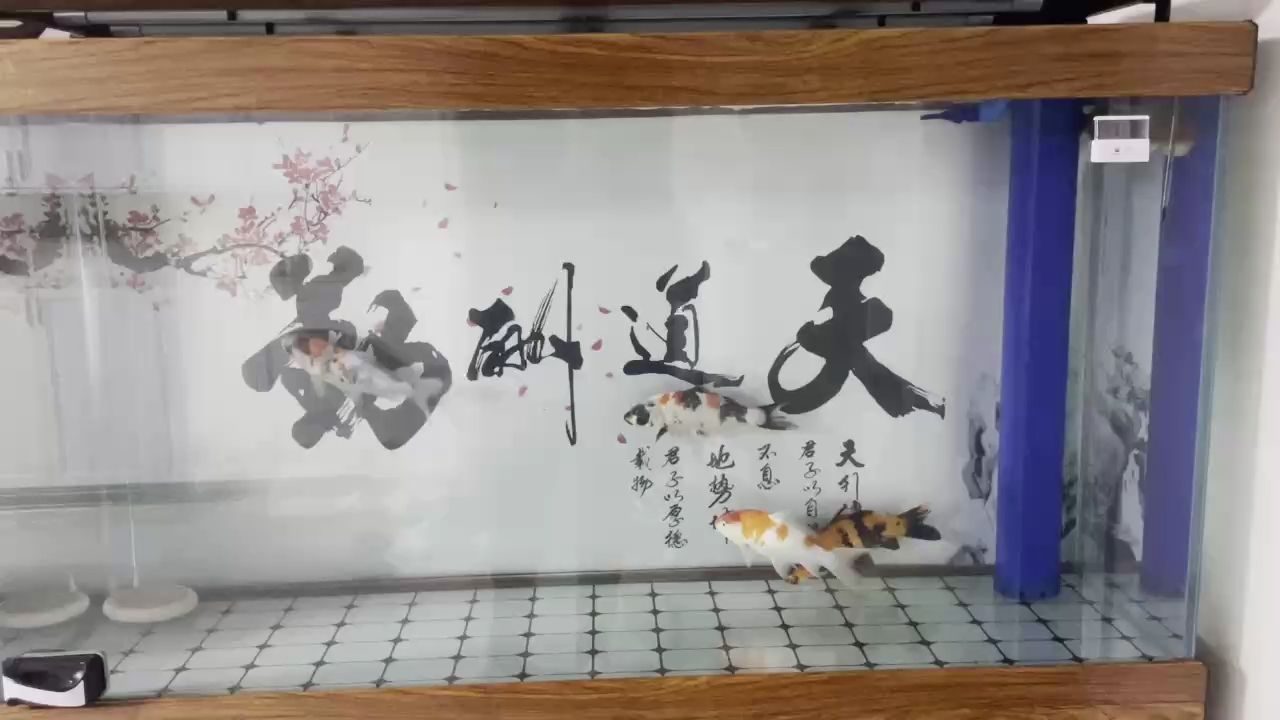 天道酬勤
天行
君子以自
不息
地势
君子以厚德
载物